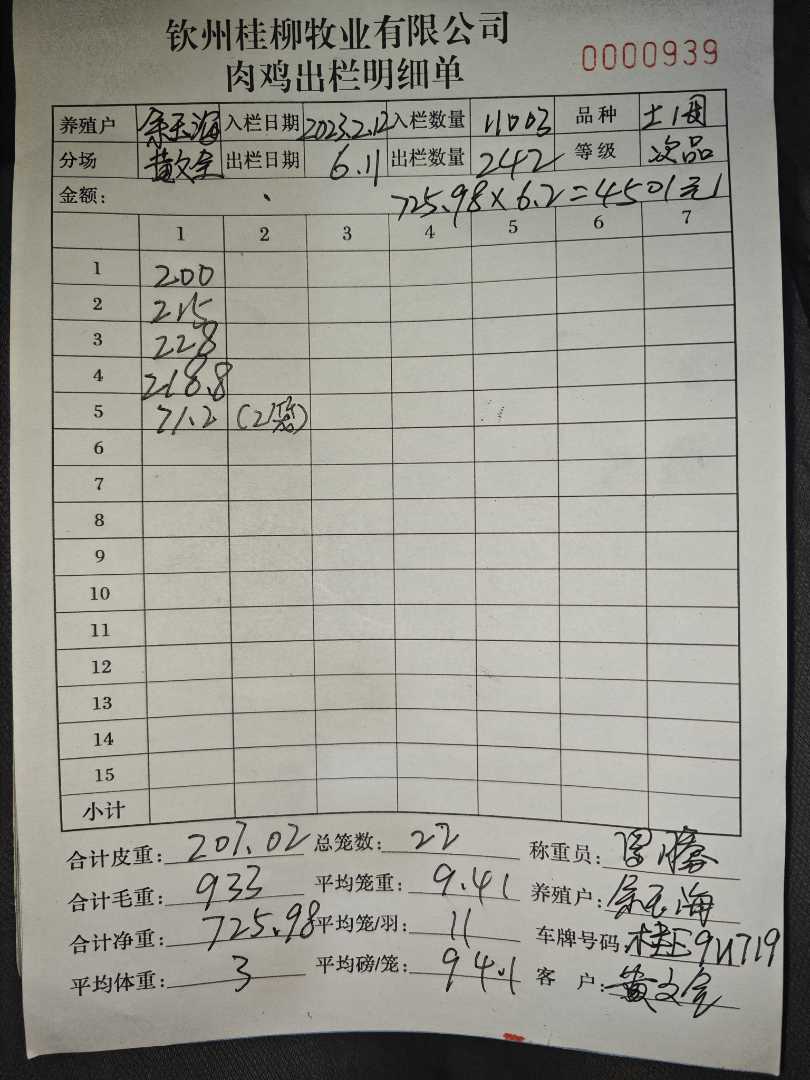 钦州桂柳牧业有限公司
肉鸡出栏明细单 0000939
养殖户 余玉海 入栏日期 2023.2.12 入栏数量 11003 品种 土1
分场 黄文 出栏日期 6.11 出栏数量 242 等级 次品
金额: 725.98×6.2=4501元
1 2 3 4 5 6 7
1 200
2 215
3 228
4 218.8
5 71.2 (2
6
7
8
9
10
11
12
13
14
15
小计
合计皮重: 207.02 总笼数: 22 称重员:
合计毛重: 933 平均笼重: 9.41 养殖户: 余玉海
合计净重: 725.98 平均笼/羽: 11 车牌号码: 桂E9U719
平均体重: 3 平均磅/笼: 94.1 客 户: 黄文